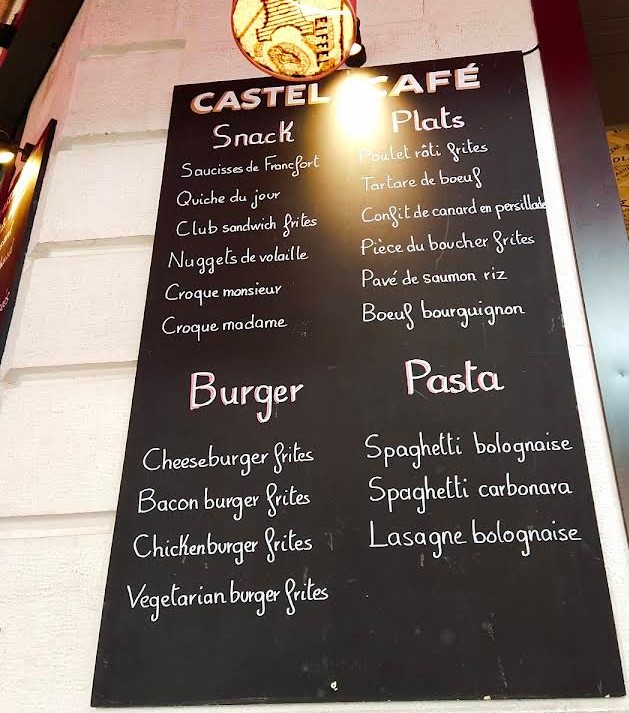 EIFFEL
CASTEL CAFÉ
Snack
Saucisses de Francfort
Quiche du jour
Club sandwich frites
Nuggets de volaille
Croque monsieur
Croque madame
Plats
Poulet rôti frites
Tartare de boeuf
Confit de canard en persillade
Pièce du boucher frites
Pavé de saumon riz
Boeuf bourguignon
Burger
Cheeseburger frites
Bacon burger frites
Chickenburger frites
Vegetarian burger frites
Pasta
Spaghetti bolognaise
Spaghetti carbonara
Lasagne bolognaise